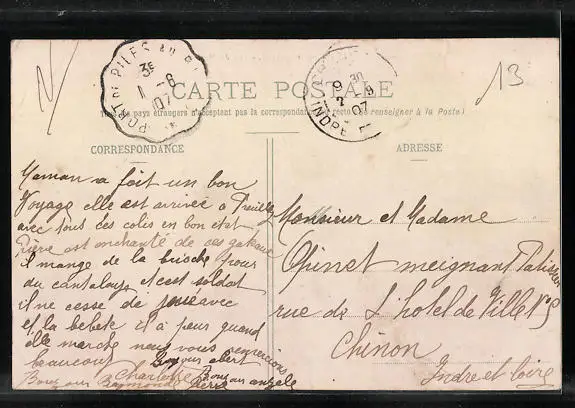 13
CARTE POSTALE
Tous les pays étrangers n'acceptent pas la correspondance au recto (Se renseigner à la Poste)
CORRESPONDANCE
Maman a fait un bon
voyage elle est arrivée a Preuilly
avec tous ses colis en bon état
Pierre est enchanté de ses gateaux
il mange de la brioche pour
du cantaloup et est soldat
il ne cesse de joue avec
et la bebete il a peur quand
elle marche nous vous remercions
beaucoup Bonjour albert
Charlotte Bonjour angele
Bonjour Raymonde Pierre
ADRESSE
Monsieur et Madame
Chinet meignant Patissier
rue de L'hotel de Ville
Chinon
Indre et Loire